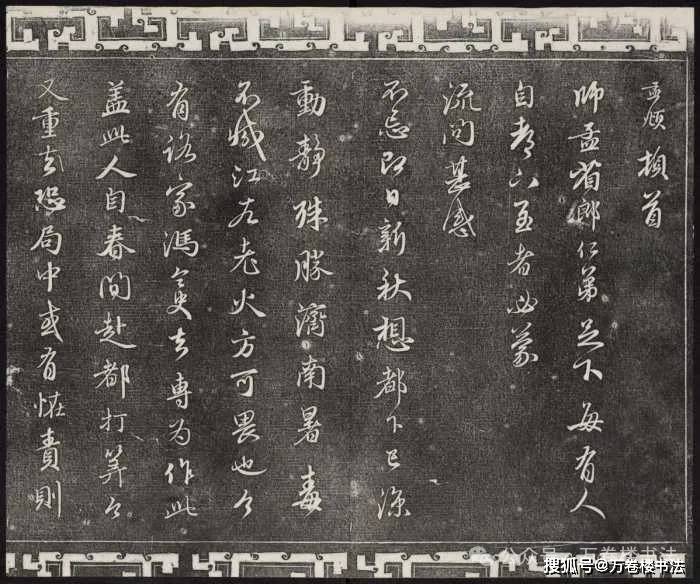 孟頫頓首
師孟省郎仁弟足下每有人
自都下至者必蒙
流問甚感
不忘即日新秋想都下已涼
動靜殊勝濟南暑毒
不減江左老火方可畏也今
有家馮去專為作此
蓋此人自春間赴都打算今
又重去恐局中或有怪責則
公众号·万卷楼书法
搜狐号@万卷楼书法